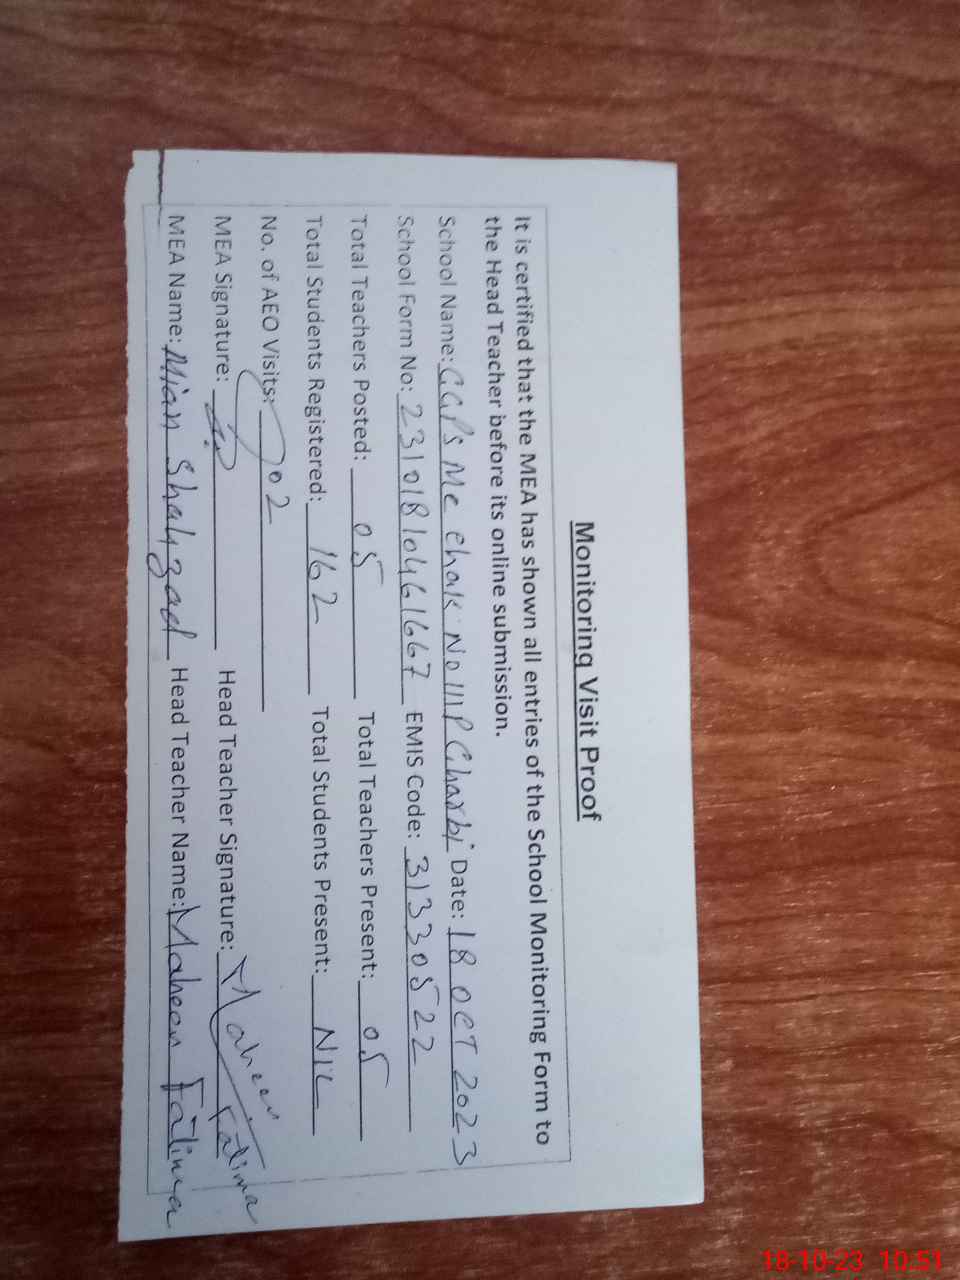 Monitoring Visit Proof
It is certified that the MEA has shown all entries of the School Monitoring Form to
the Head Teacher before its online submission.
School Name: GGPS Mc Chak No 111P Gharbi Date: 18 OCT 2023
School Form No: 23101810461667 EMIS Code: 31330522
Total Teachers Posted: 05 Total Teachers Present: 05
Total Students Registered: 162 Total Students Present: NIL
No. of AEO Visits: 02
MEA Signature: Head Teacher Signature: Maheen Fatima
MEA Name: Mian Shahzad Head Teacher Name: Maheen Fatima
18-10-23 10:51